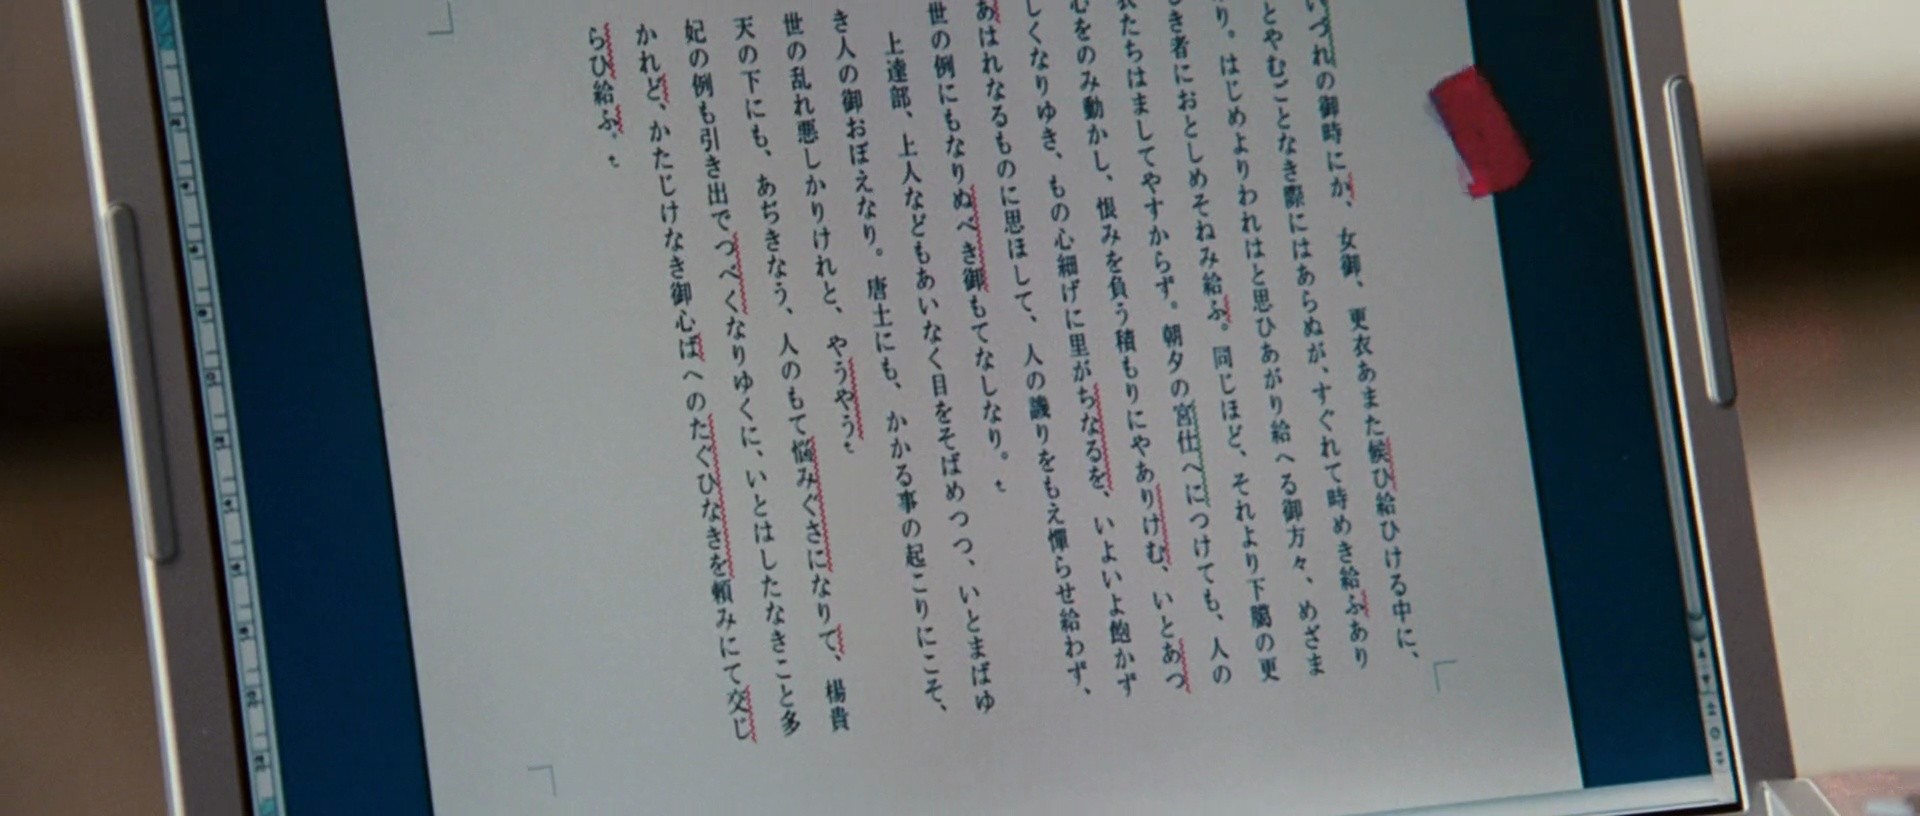 いづれの御時にか、女御、更衣あまた候ひ給ひける中に、
とやむごとなき際にはあらぬが、すぐれて時めき給ふあり
り。はじめよりわれはと思ひあがり給へる御方々、めざま
き者におとしめそねみ給ふ。同じほど、それより下臈の更
衣たちはましてやすからず。朝夕の宮仕へにつけても、人の
心をのみ動かし、恨みを負う積もりにやありけむ、いとあつ
しくなりゆき、もの心細げに里がちなるを、いよいよ飽かず
あはれなるものに思ほして、人の譏りをもえ憚らせ給わず、
世の例にもなりぬべき御もてなしなり。
上達部、上人などもあいなく目をそばめつつ、いとまばゆ
き人の御おぼえなり。唐土にも、かかる事の起こりにこそ、
世の乱れ悪しかりけれと、やうやう
天の下にも、あぢきなう、人のもて悩みぐさになりて、楊貴
妃の例も引き出でつべくなりゆくに、いとはしたなきこと多
かれど、かたじけなき御心ばへのたぐひなきを頼みにて交じ
らひ給ふ。